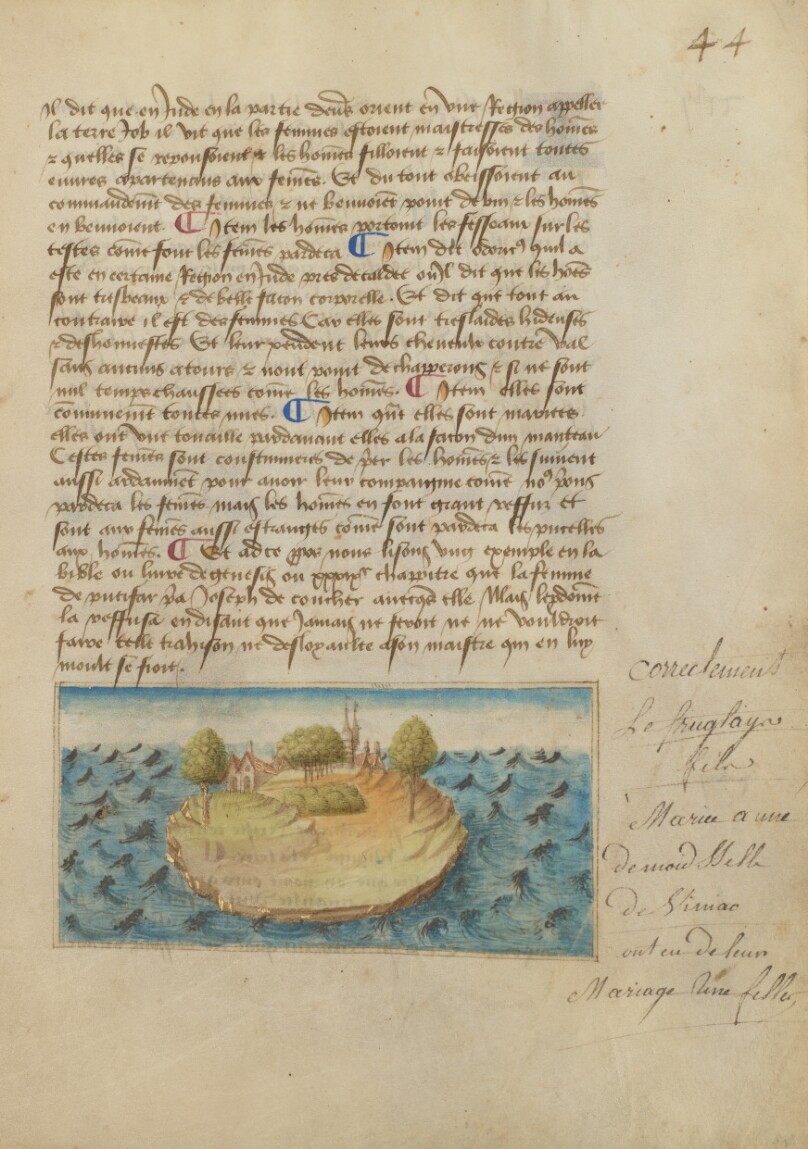 44
Il dit que en Inde en la partie deu͂s orient en̄ vne Region appellee
la terre Job il vit que les femmes estoient maistresses des hom̄es
⁊ quelles se reposoient ⁊ les hom̄es filloient ⁊ faisoient toutes
euures apartenans aux fem̄es. Et du tout obeissoient au
commandem̄t des femmes ⁊ ne beuuoiēt point de vin ⁊ les hom̄es
en beuuoient. ¶ Item les hom̄es portoiēt les fesseaux sur les
testes com̄e font les fem̄es pardeca ¶ Item dit odoric9 quil a
este en certaine Region en Inde pres de caldee ou Il dit que les hōes
sont tresbeaux ⁊ de belle facon corporelle. Et dit que tout au
contraire il est des femmes Car elles sont treslaides hideuses
⁊ deshonnestes Et leur pendent leurs cheueux contre val
sans aucuns atours ⁊ nont point de chapperons ⁊ si ne sont
nul temps chaussees com̄e les hom̄es. ¶ Item elles sont
communem̄t toutes nues. ¶ Item qn̄t elles sont mariees
elles ont vne touaille pardauant elles a la facon dun manteau
Cestes fem̄es sont coustumieres de p̄er les hom̄es ⁊ les suiuent
aussi ardanmēt pour auoir leur compaignie com̄e no9 p̄ons
pardeca les fem̄es mais les hom̄es en font grant reffuz et
sont aux fem̄es aussi estranges com̄e sont pardeca les pucelles
aux hom̄es. ¶ Et ad ce ꝓpos nous lisons vng exemple en la
bible ou liure de genesis ou xxxixe chappitre que la femme
de putifar p̄a Joseph de coucher auecq̄s elle Mais le preudōme
la reffusa en disant que Jamais ne feroit ne ne vouldroit
faire telle trahison ne desloyaulte a son maistre qui en luy
moult se fioit.
correctement
Le
fils
Marie anne
de
de
ont eu de leur
Mariage Une fille